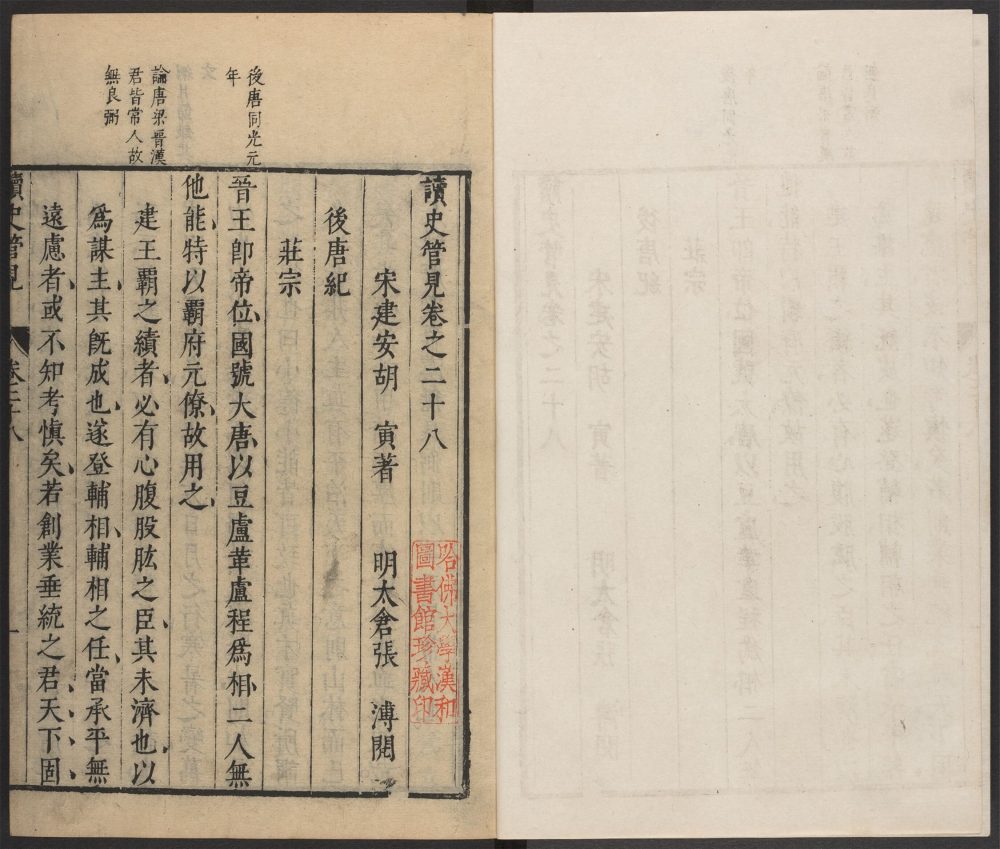 後唐同光元
年
論唐梁晉漢
君皆常人故
無良弼
讀史管見卷之二十八
宋建安胡 寅著 明太倉張 溥閱
後唐紀
莊宗
晉王即帝位國號大唐以豆盧革盧程爲相二人無
他能特以霸府元僚故用之
建王霸之績者必有心腹股肱之臣其未濟也以
爲謀主其旣成也遂登輔相輔相之任當承平無
遠慮者或不知考慎矣若創業垂統之君天下固
讀史管見 卷二十八 一
哈佛大學漢和
圖書館珍藏印